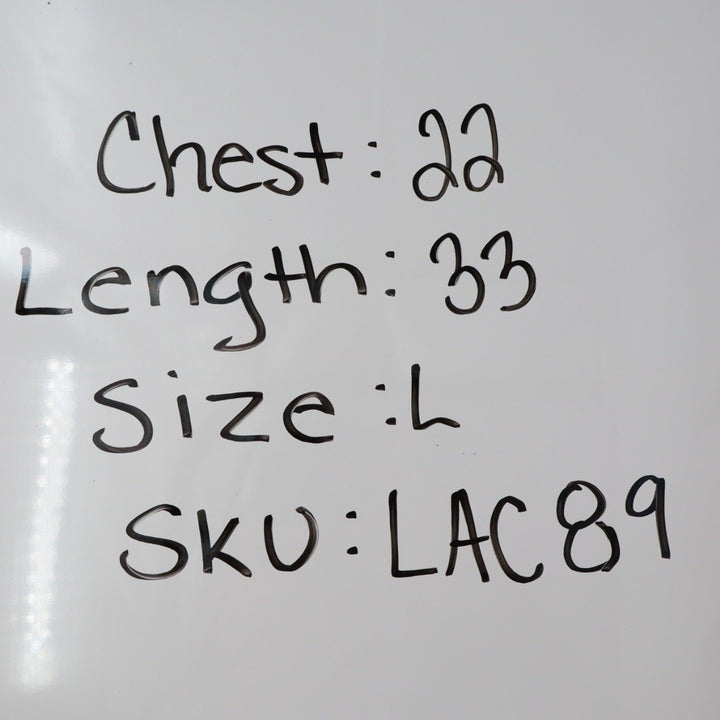 Chest: 22
Length: 33
Size: L
SKU: LAC89